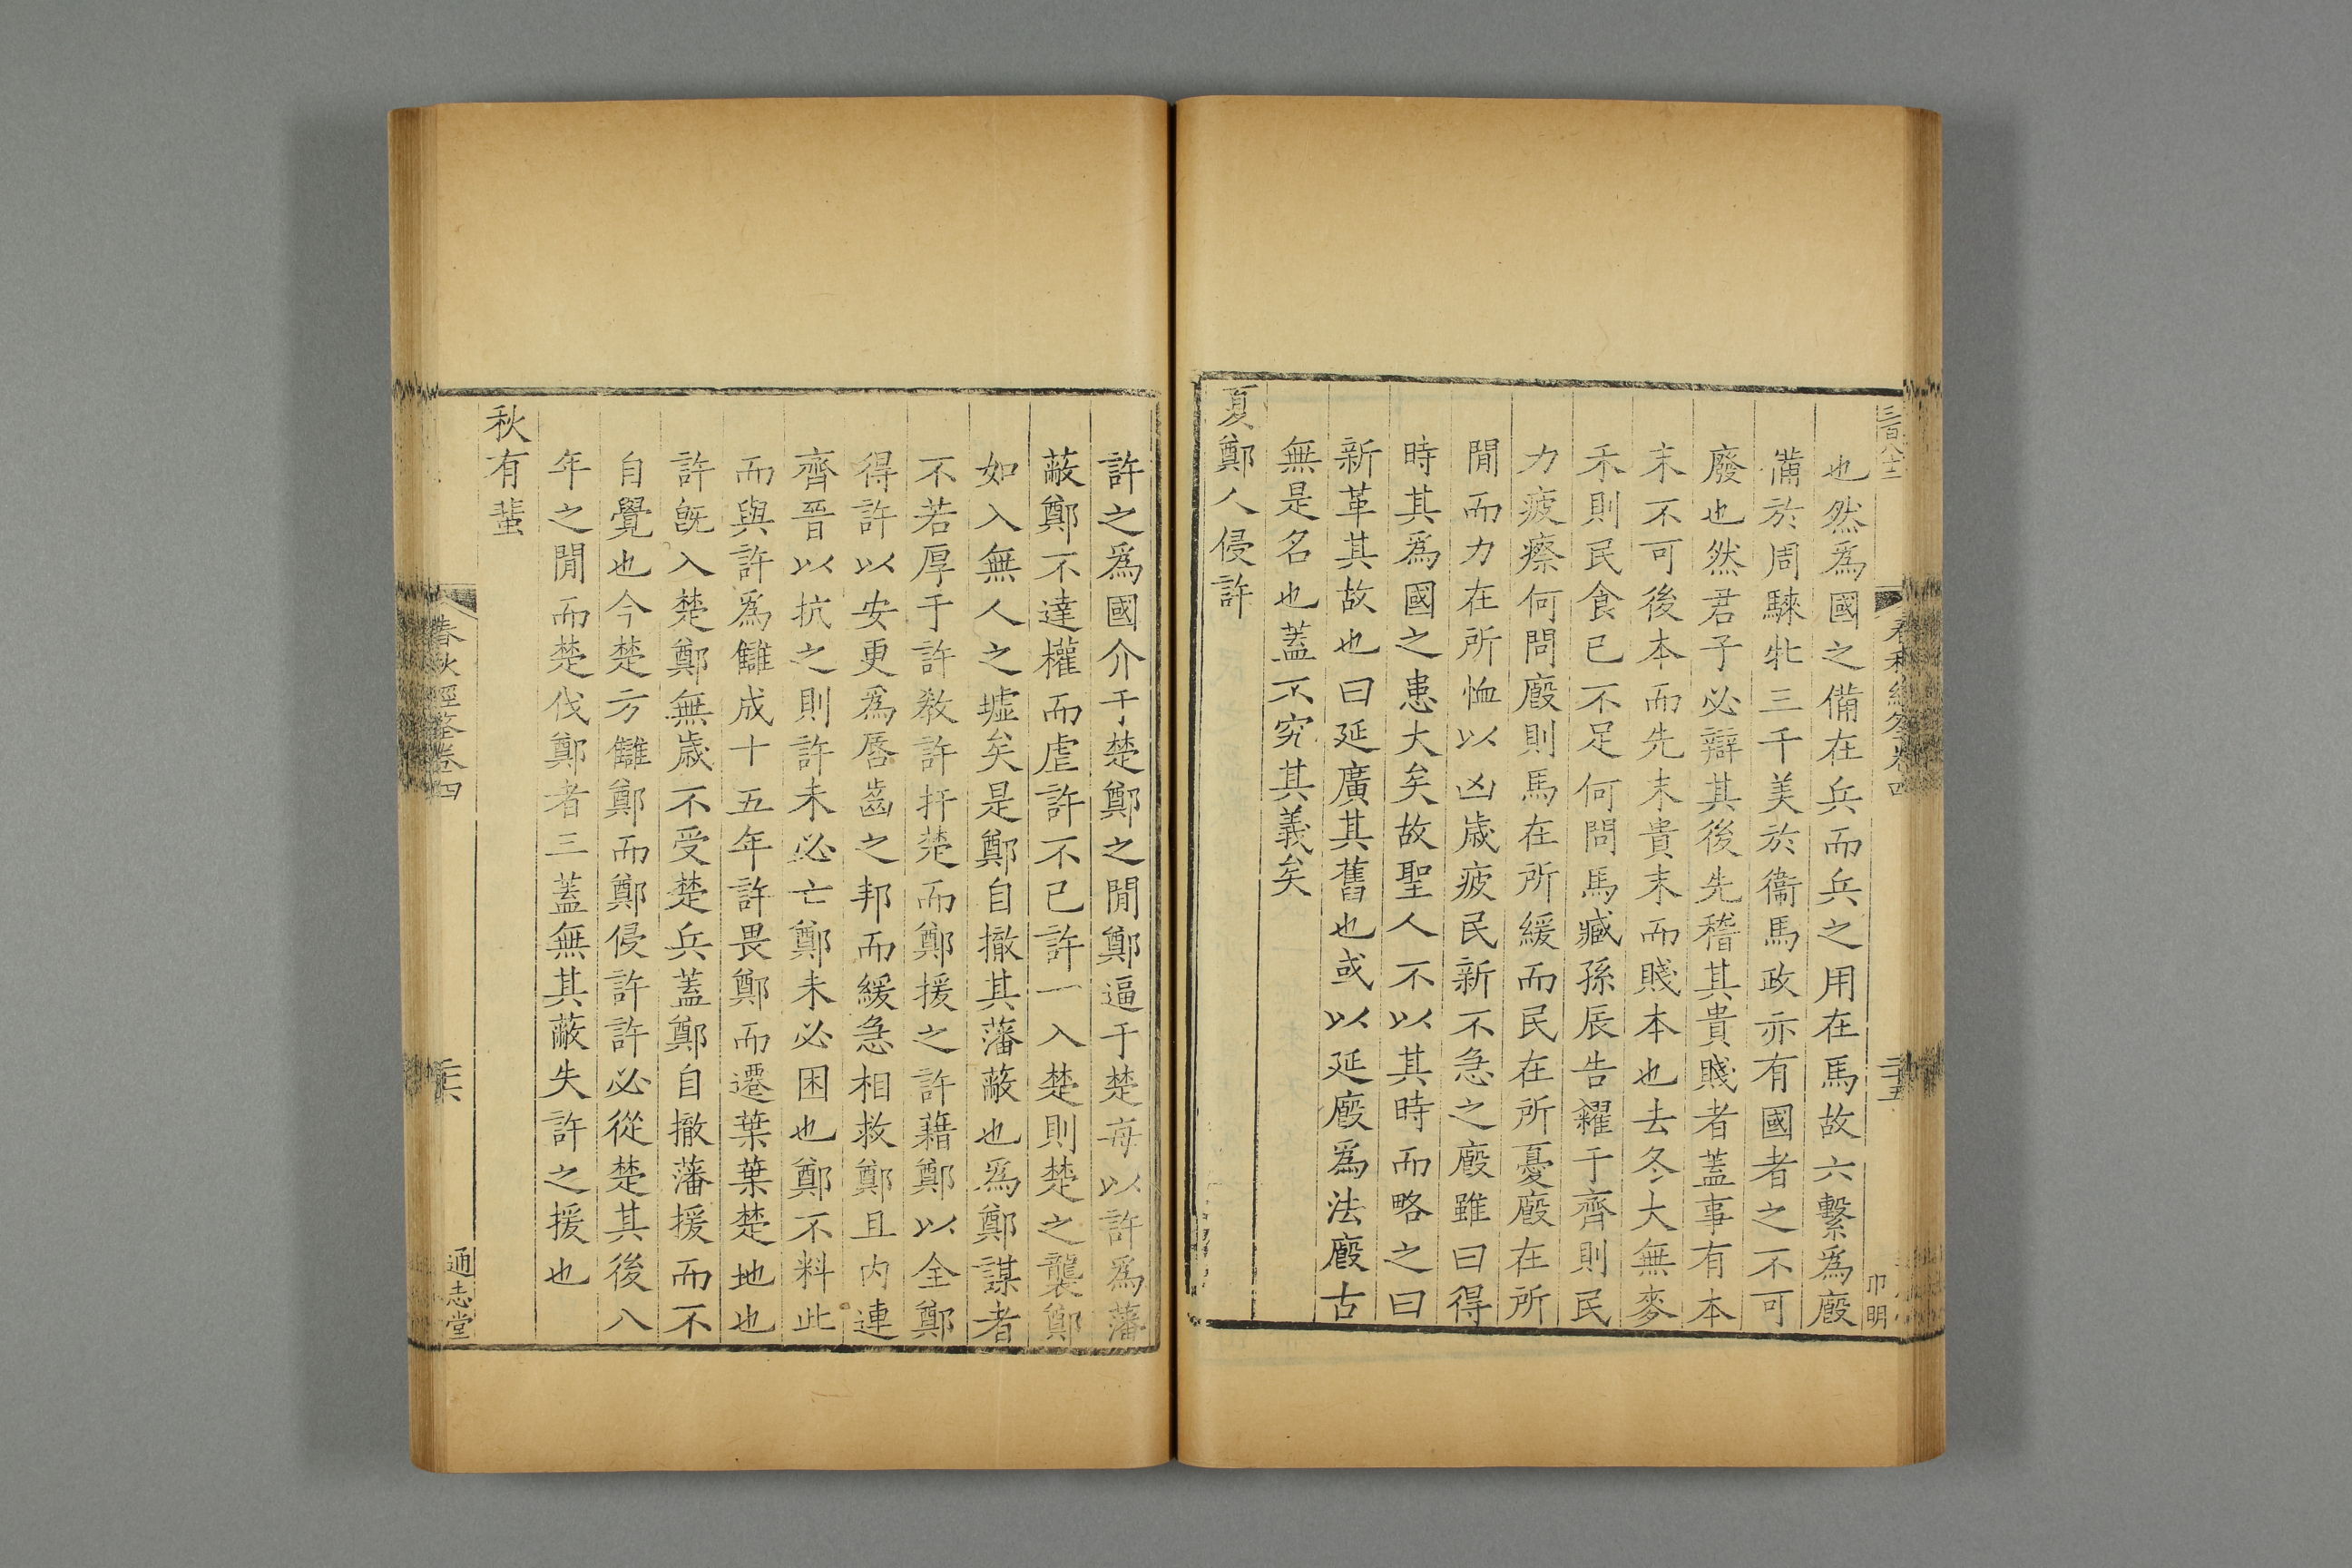 三百八十二
春秋經筌卷四
二十五
卩明
也然爲國之備在兵而兵之用在馬故六繫爲廄
備於周騋牝三千美於衞馬政亦有國者之不可
廢也然君子必辯其後先稽其貴賤者蓋事有本
末不可後本而先末貴末而賤本也去冬大無麥
禾則民食已不足何問馬臧孫辰告糴于齊則民
力疲瘵何問廄則馬在所緩而民在所憂廄在所
閒而力在所恤以凶歲疲民新不急之廄雖曰得
時其爲國之患大矣故聖人不以其時而略之曰
新革其故也曰延廣其舊也或以延廄爲法廄古
無是名也蓋不究其義矣
夏鄭人侵許
許之爲國介于楚鄭之閒鄭逼于楚每以許爲藩
蔽鄭不達權而虐許不已許一入楚則楚之襲鄭
如入無人之墟矣是鄭自撤其藩蔽也爲鄭謀者
不若厚于許敎許扞楚而鄭援之許藉鄭以全鄭
得許以安更爲脣齒之邦而緩急相救鄭且内連
齊晉以抗之則許未必亡鄭未必困也鄭不料此
而與許爲讎成十五年許畏鄭而遷葉葉楚地也
許旣入楚鄭無歲不受楚兵蓋鄭自撤藩援而不
自覺也今楚方讎鄭而鄭侵許許必從楚其後八
年之閒而楚伐鄭者三蓋無其蔽失許之援也
秋有蜚
春秋經筌卷四
二十六
通志堂